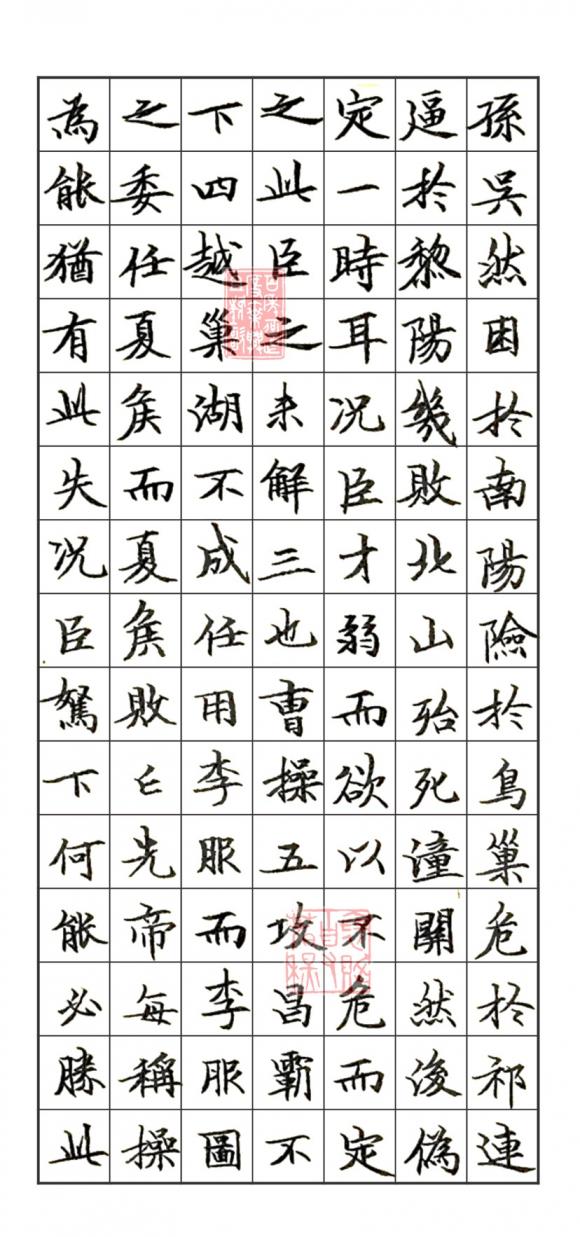 孫吳然困於南陽險於烏巢危於祁連
逼於黎陽幾敗北山殆死潼關然後偽
定一時耳况臣才弱而欲以不危而定
之此臣之未解三也曹操五攻昌霸不
下四越巢湖不成任用李服而李服圖
之委任夏侯而夏侯敗亡先帝每稱操
為能猶有此失况臣駑下何能必勝此